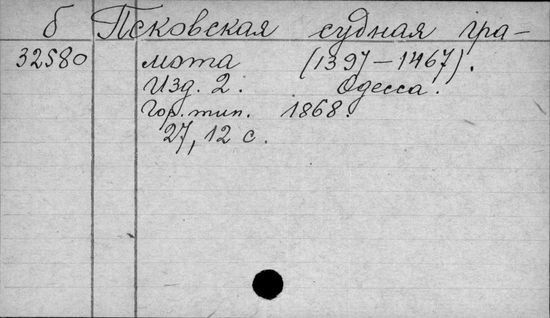 б Псковская судная гра-
32580 мота (1397-1467).
Изд. 2. Одесса.
Гор. тип. 1868.
27, 12 с.